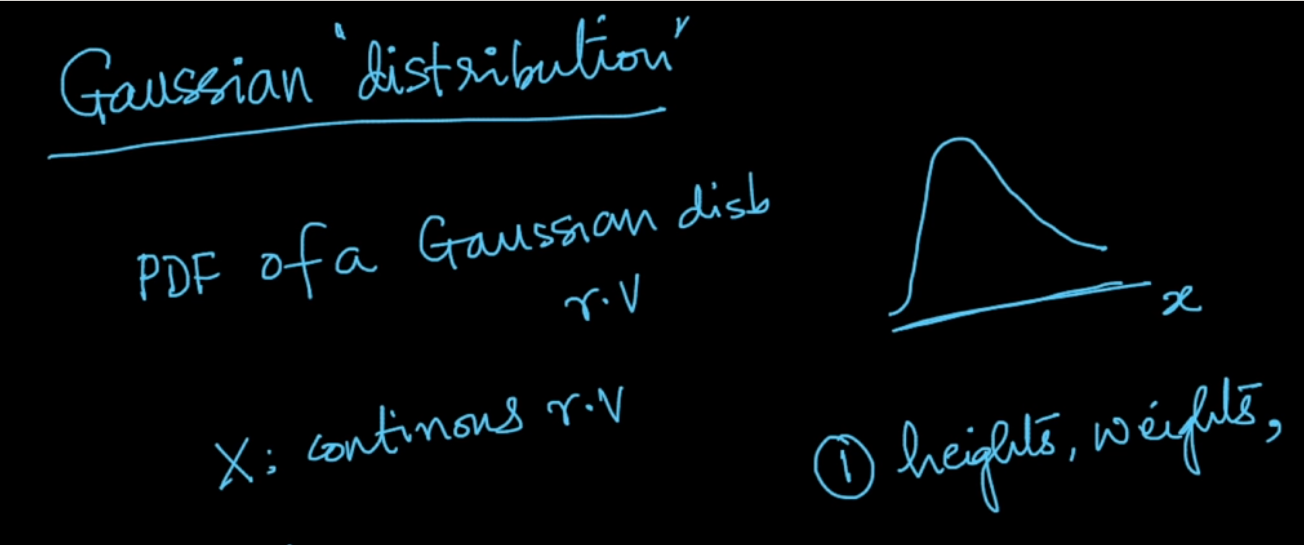 Gaussian "distribution"
PDF of a Gaussian disb
r.V
x
X: continous r.V
① heights, weights,